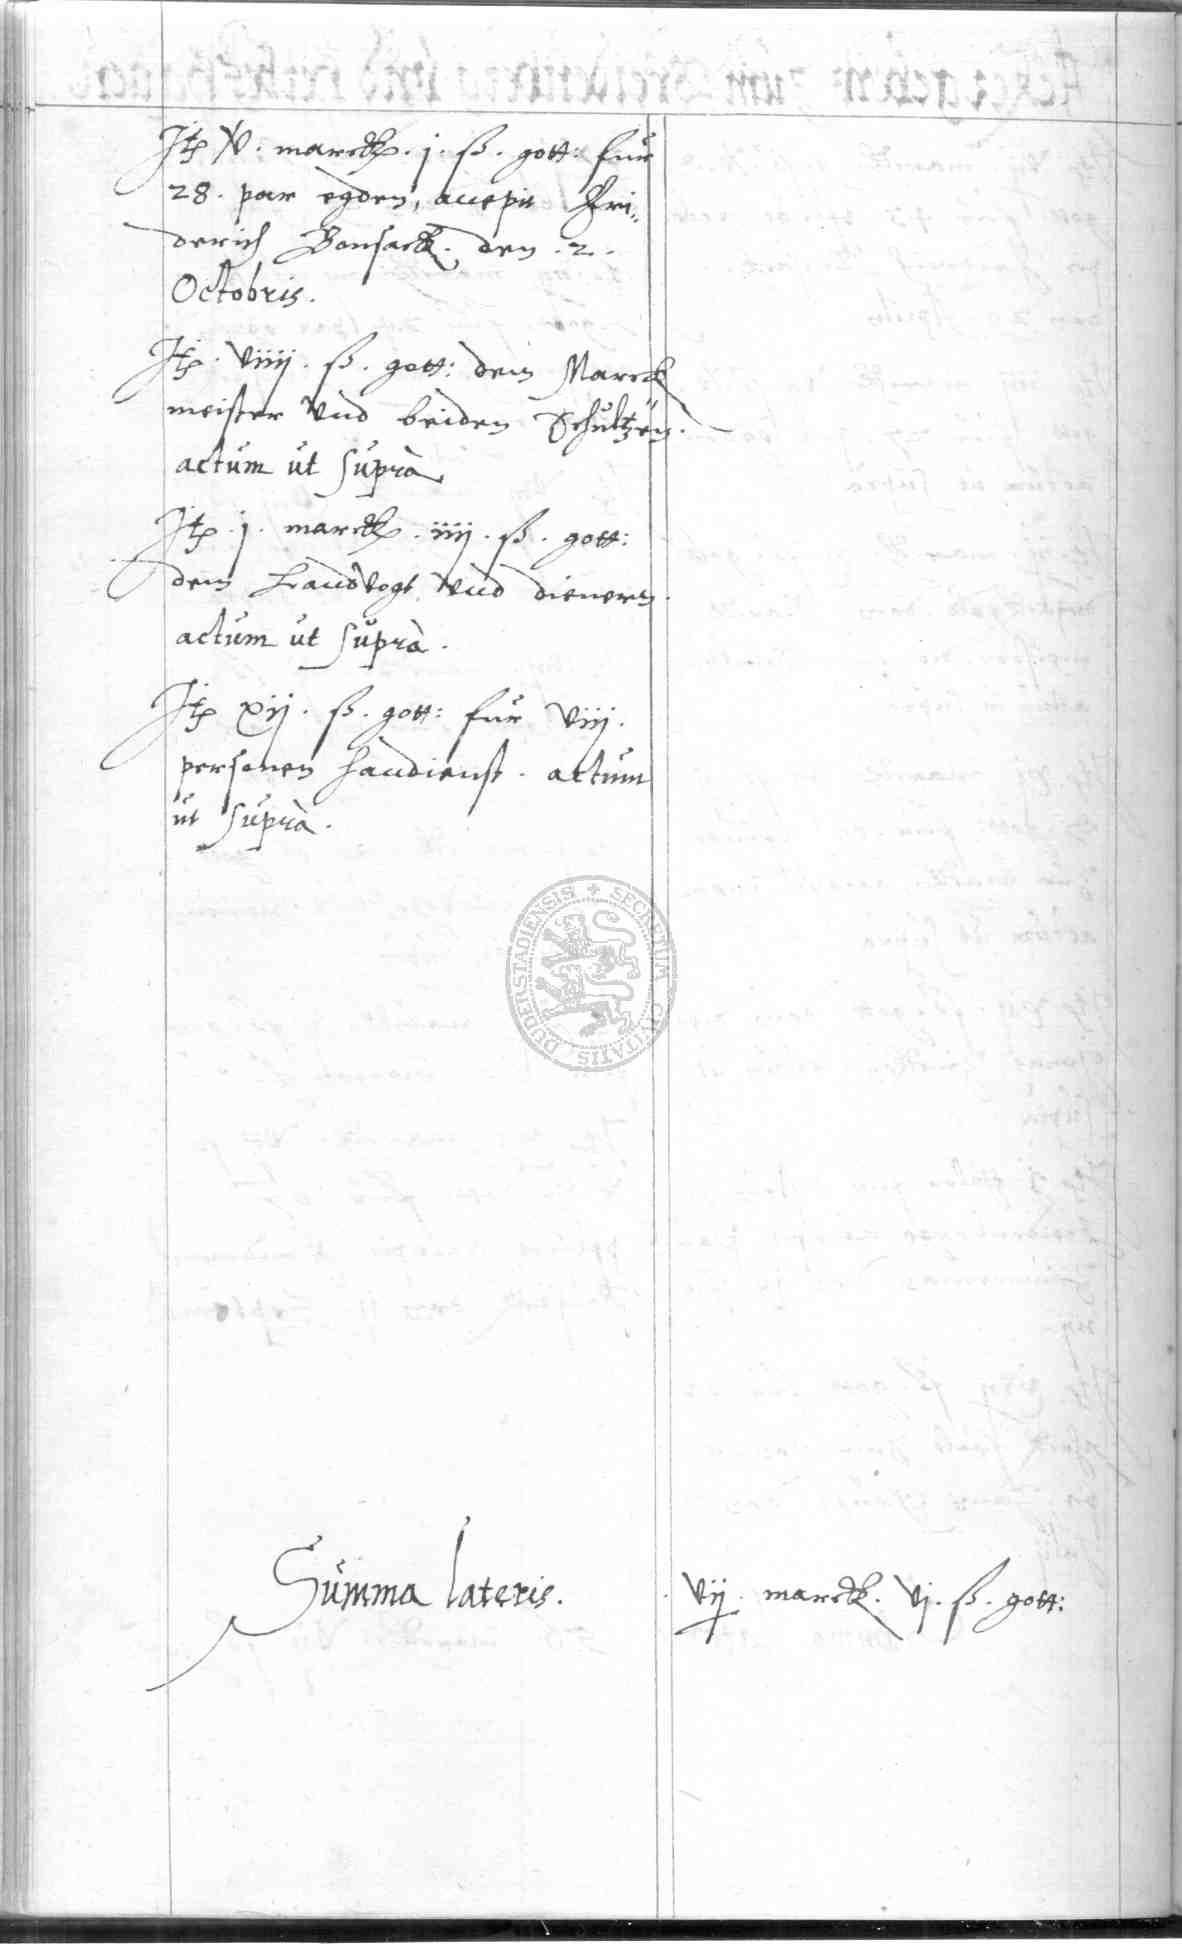 Itē V. marck. j. ß. gott: fur
28. par egden, accepit Fri„
derich Bonsack. den .2.
Octobris.
Itē. Viiij. ß. gott: dem Marck
meister vnd beiden Schultzen.
actum ut suprà
Itē .j. marck. iiij. ß. gott:
dem Landvogt vnd dienern.
actum ut suprà.
Itē xij. ß. gott: fur Viij.
personen handienst. actum
ut suprà.
SECRETUM CIVITATIS DUDERSTADIENSIS
Summa lateris. Vij. marck. Vj. ß. gott: